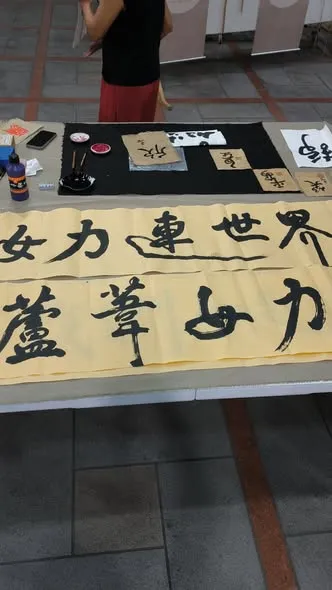 女力連世界
蘆葦女力